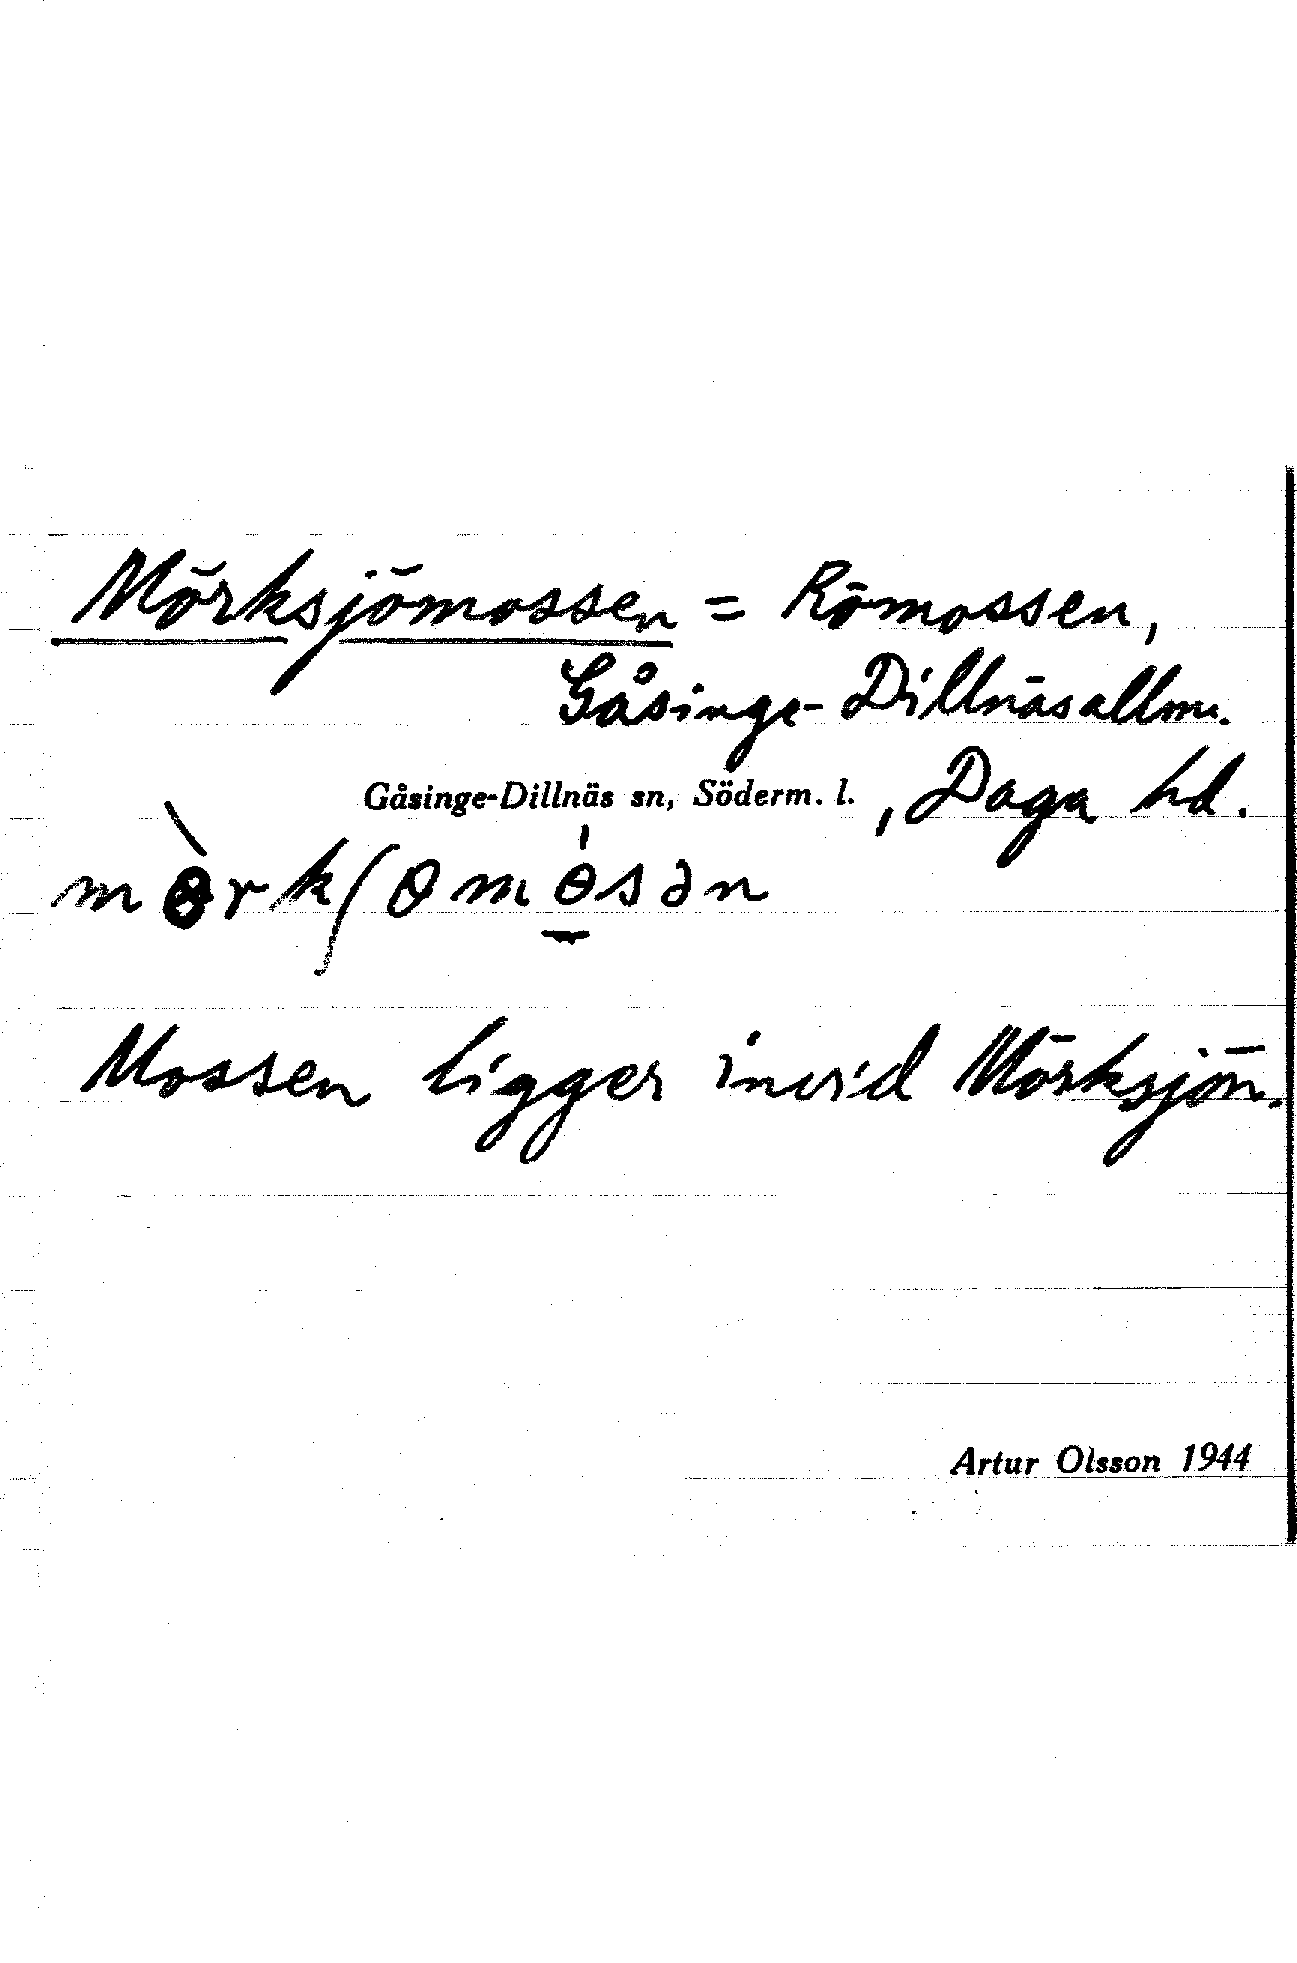 Mörksjömossen = Römossen,
Gåsinge-Dillnäsallm.
Gåsinge-Dillnäs sn, Söderm. l. , Daga hd.
mɵ̀rkʃɵmɵ́sən
Mossen ligger invid Mörksjön.
Artur Olsson 1944